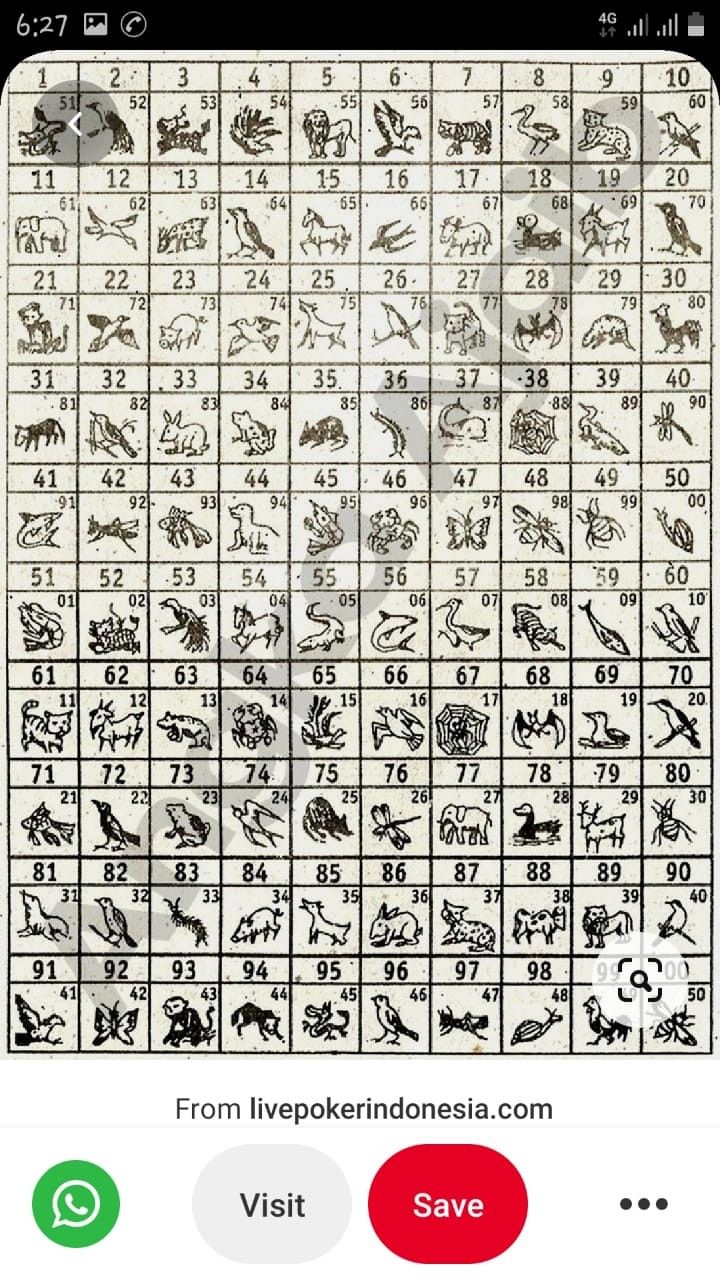 6:27 4G
1 2 3 4 5 6 7 8 9 10
51 52 53 54 55 56 57 58 59 60
11 12 13 14 15 16 17 18 19 20
61 62 63 64 65 66 67 68 69 70
21 22 23 24 25 26 27 28 29 30
71 72 73 74 75 76 77 78 79 80
31 32 33 34 35 36 37 38 39 40
81 82 83 84 85 86 87 88 89 90
41 42 43 44 45 46 47 48 49 50
91 92 93 94 95 96 97 98 99 00
51 52 53 54 55 56 57 58 59 60
01 02 03 04 05 06 07 08 09 10
61 62 63 64 65 66 67 68 69 70
11 12 13 14 15 16 17 18 19 20
71 72 73 74 75 76 77 78 79 80
21 22 23 24 25 26 27 28 29 30
81 82 83 84 85 86 87 88 89 90
31 32 33 34 35 36 37 38 39 40
91 92 93 94 95 96 97 98 99 00
41 42 43 44 45 46 47 48 50
Angka Ajaib
From livepokerindonesia.com
Visit Save